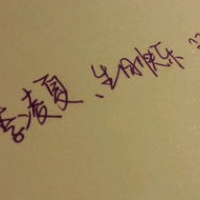 李凌夏、生日快乐